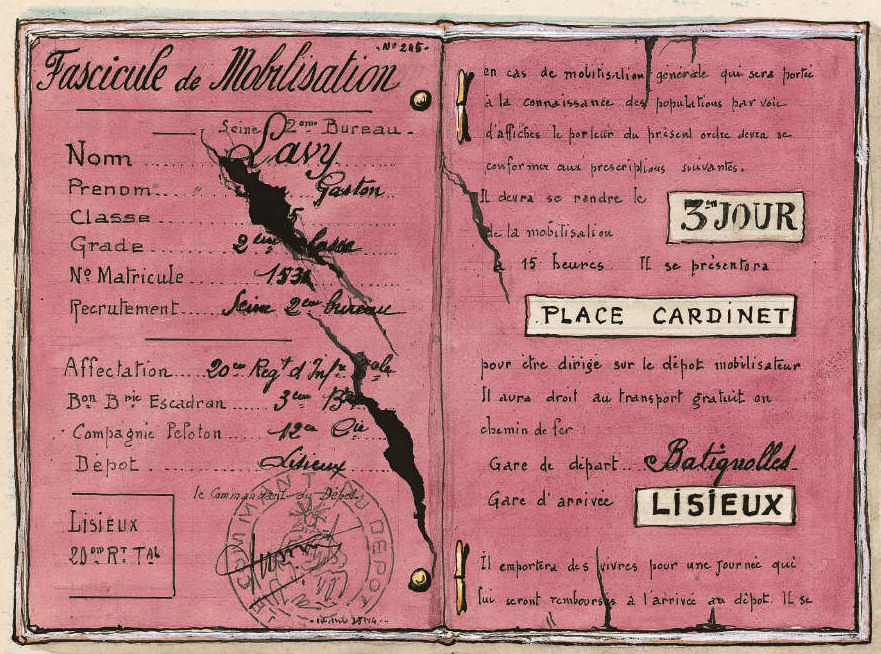 Nº 245
Fascicule de Mobilisation
Seine 2eme Bureau
Nom Lavy
Prenom Gaston
Classe 5
Grade 2eme classe
Nº Matricule 1531
Recrutement Seine 2eme bureau
Affectation 20eme Regt d'Infie ale
Bon Brie Escadron 3eme Bon
Compagnie Peloton 12eme Cie
Dépot Lisieux
le Commandant du Dépot
LISIEUX
20eme RT TAL
COMMANT DU DEPOT
en cas de mobilisation générale qui sera portée
à la connaissance des populations par voie
d'affiches le porteur du présent ordre devra se
conformer aux prescriptions suivantes.
Il devra se rendre le 3me JOUR
de la mobilisation
à 15 heures. Il se présentera
PLACE CARDINET
pour être dirigé sur le dépot mobilisateur
Il aura droit au transport gratuit en
chemin de fer
Gare de départ Batignolles
Gare d'arrivée LISIEUX
Il emportera des vivres pour une journée qui
lui seront remboursés à l'arrivée au dépot. Il se